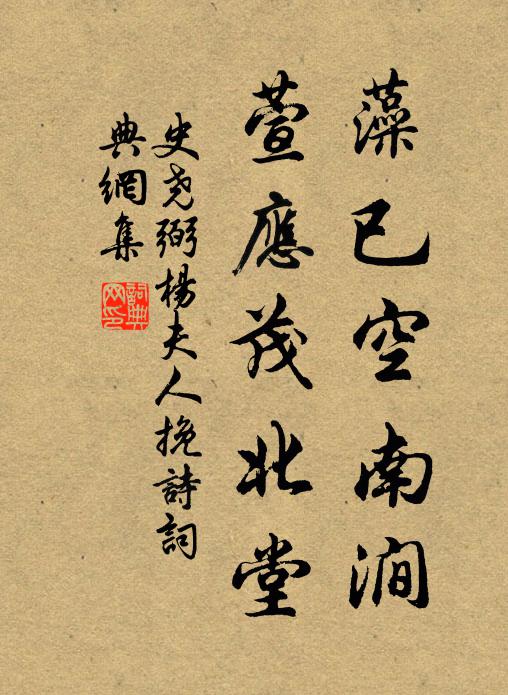 藻已空南澗
萱應茂北堂
史堯弼楊夫人挽詩詞
典網集
詞典网印